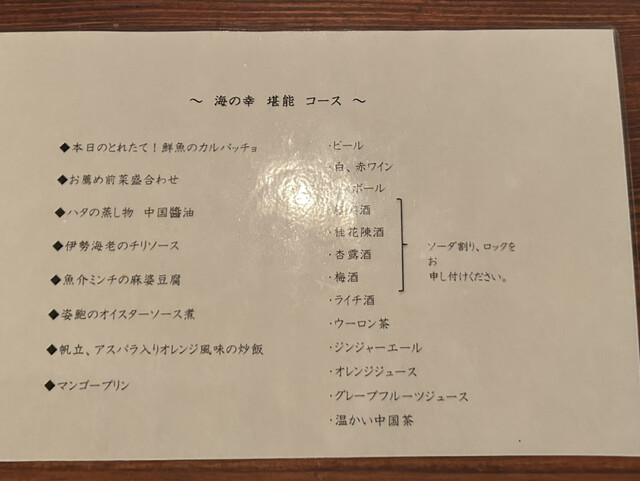 ～ 海の幸 堪能 コース ～
◆本日のとれたて！鮮魚のカルパッチョ
◆お薦め前菜盛合わせ
◆ハタの蒸し物 中国醬油
◆伊勢海老のチリソース
◆魚介ミンチの麻婆豆腐
◆姿鮑のオイスターソース煮
◆帆立、アスパラ入りオレンジ風味の炒飯
◆マンゴープリン
・ビール
・白、赤ワイン
ボール
酒
・桂花陳酒
・杏露酒
・梅酒
・ライチ酒
・ウーロン茶
・ジンジャーエール
・オレンジジュース
・グレープフルーツジュース
・温かい中国茶
ソーダ割り、ロックを
お
申し付けください。